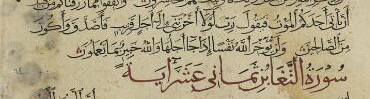 وَأَنفِقُوا مِمَّا رَزَقْنَاكُم مِّن
أَن يَأْتِيَ أَحَدَكُمُ الْمَوْتُ فَيَقُولَ رَبِّ لَوْلَا أَخَّرْتَنِي إِلَىٰ أَجَلٍ قَرِيبٍ فَأَصَّدَّقَ وَأَكُون
مِّنَ الصَّالِحِينَ وَلَن يُؤَخِّرَ اللَّهُ نَفْسًا إِذَا جَاءَ أَجَلُهَا وَاللَّهُ خَبِيرٌ بِمَا تَعْمَلُونَ
سُورَةُ التَّغَابُنِ ثَمَانِي عَشَرَ آيَة